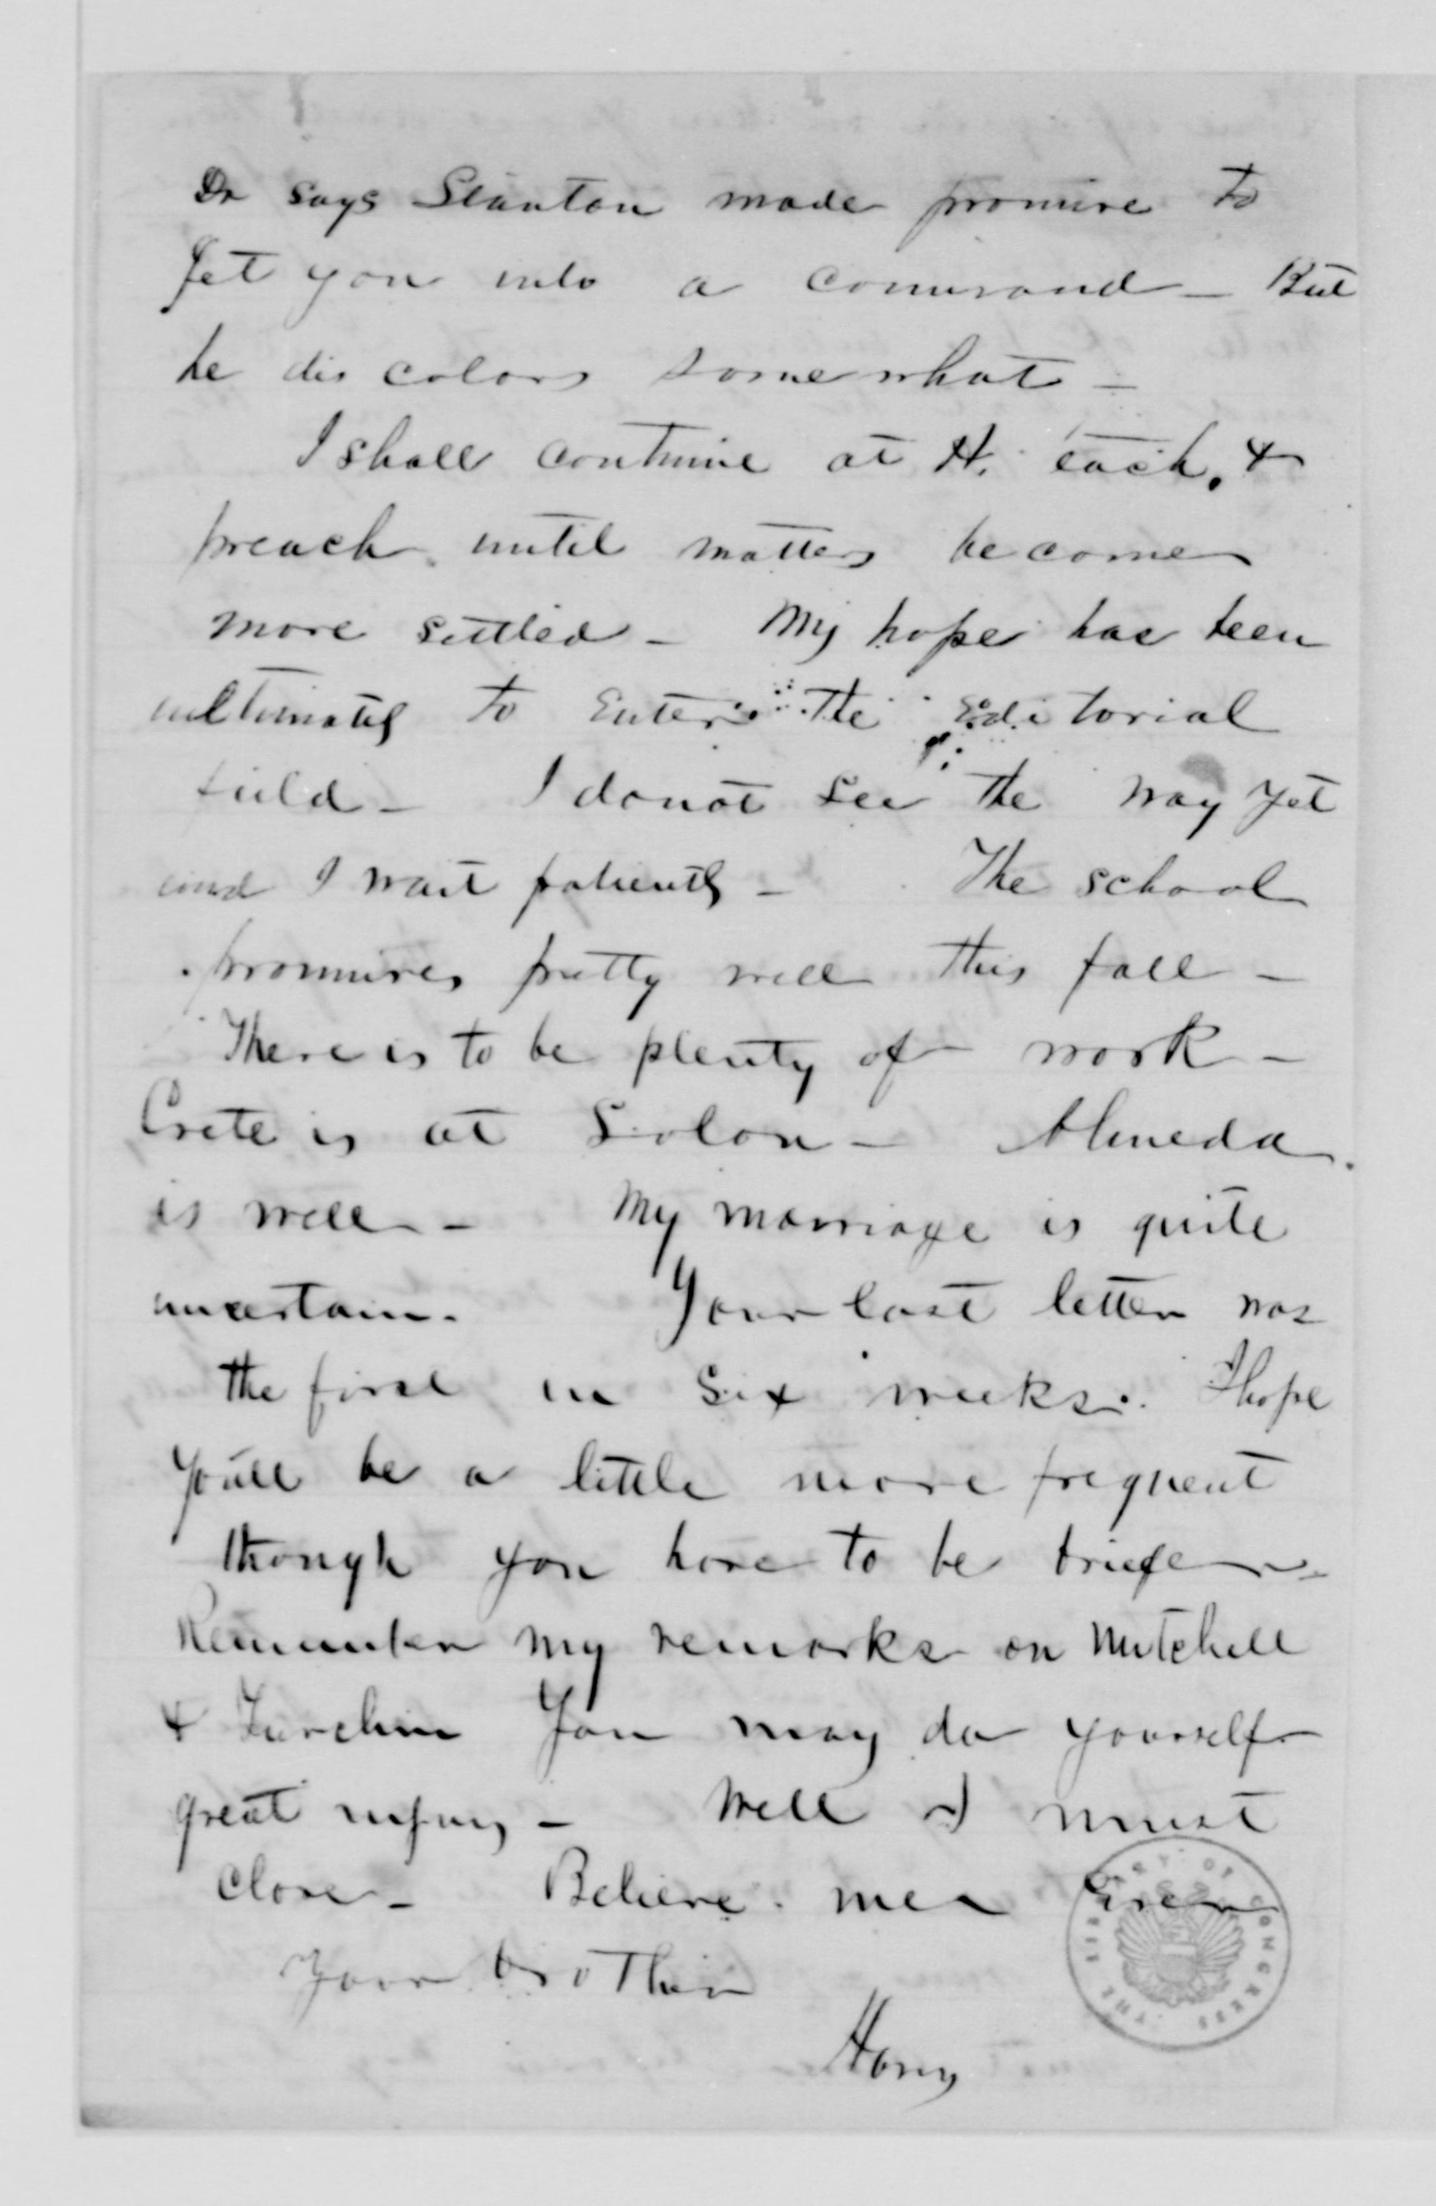 Dr says Stanton made promise to
get you into a command - But
he dis colors somewhat -
I shall continue at H. teach, &
preach until matters become
more settled - My hope has been
ultimately to enter the Editorial
field - I do not see the way yet
and I wait patiently - The school
promises pretty well this fall -
There is to be plenty of work -
Crete is at Solon - Almeda
is well - My marriage is quite
uncertain. Your last letter was
the first in six weeks. I hope
you'll be a little more frequent
though you have to be briefer.
Remember my remarks on Mitchell
& Turchin You may do yourself
great injury - Well I must
close - Believe me Ever
Your brother
Harry
THE LIBRARY OF CONGRESS